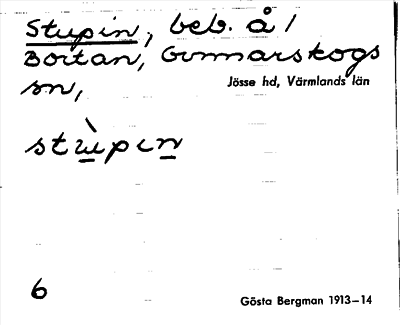 Stupin, beb. å /
Bortan, Gunnarskogs
sn,
Jösse hd, Värmlands län
stu̠̇̀pin̠
6
Gösta Bergman 1913–14